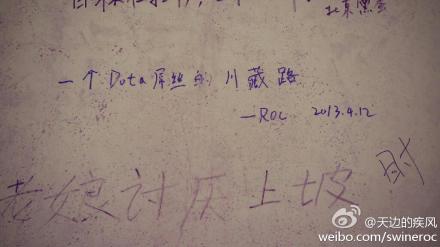 北京
一个Dota屌丝的川藏路
—ROC 2013.4.12
老娘讨厌上坡 时
@天边的疾风
weibo.com/swineroc